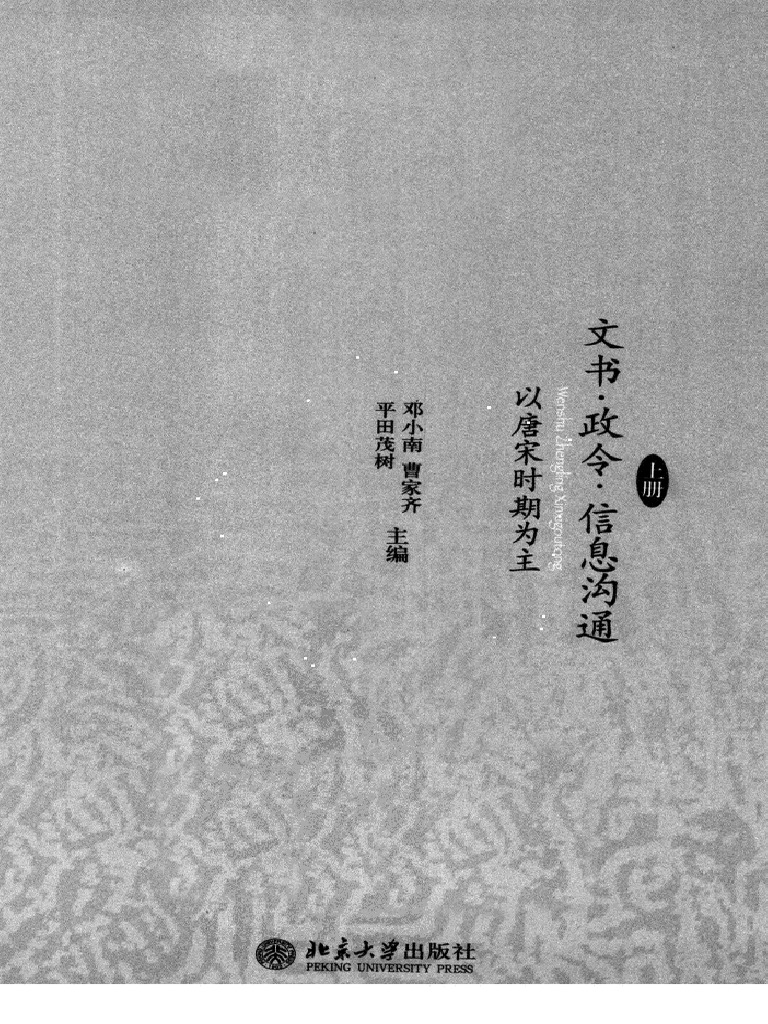 上册
文书·政令·信息沟通
Wenshu Zhengling Xinxigoutong
以唐宋时期为主
邓小南 曹家齐
平田茂树
主编
北京大学出版社
PEKING UNIVERSITY PRESS